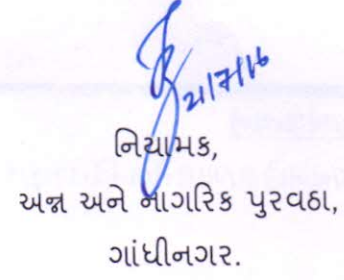 21/7/16
નિયામક,
અન્ન અને નાગરિક પુરવઠા,
ગાંધીનગર.